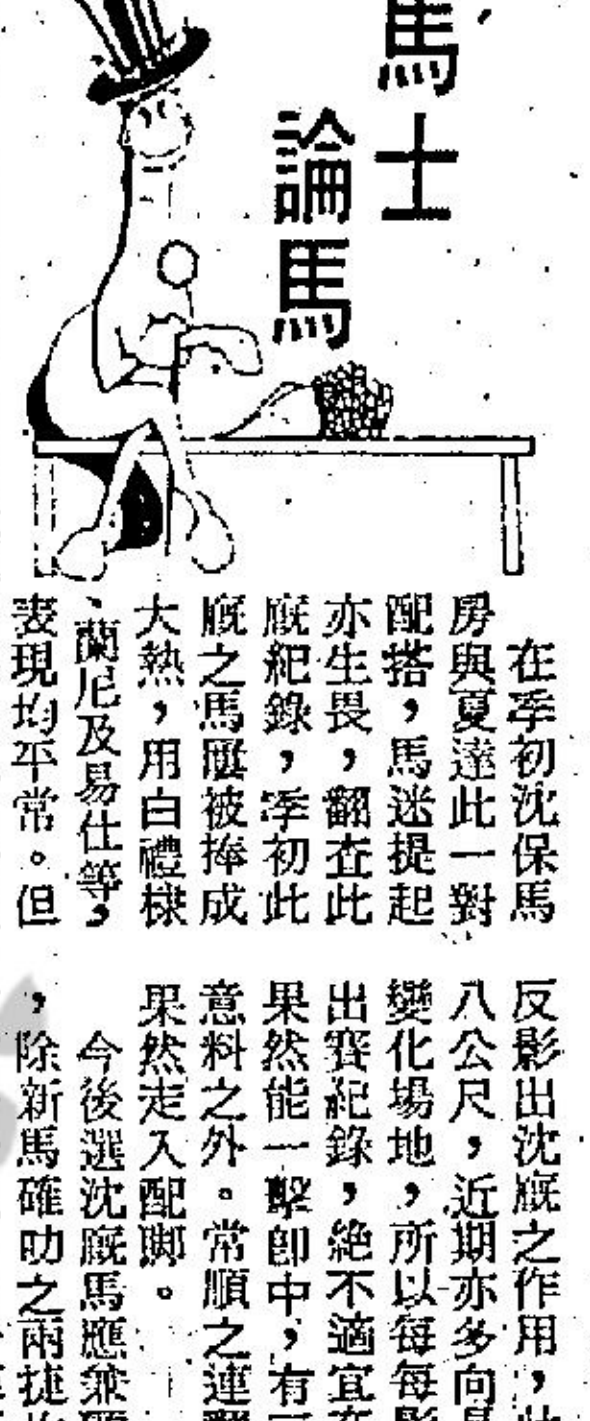 馬士
論馬
在季初沈保馬
房與夏達此一對
配搭，馬迷提起
亦生畏，翻查此
廐紀錄，季初此
廐之馬匹被捧成
大熱，用白禮棣
、蘭尼及易仕等，
表現均平常。但
反影出沈廐之作用，
八公尺，近期亦多向
變化場地，所以每每
出賽紀錄，絕不適宜
果然能一擊即中，有
意料之外。常順之連
果然走入配脚。
今後選沈廐馬應兼
，除新馬確叻之兩捷